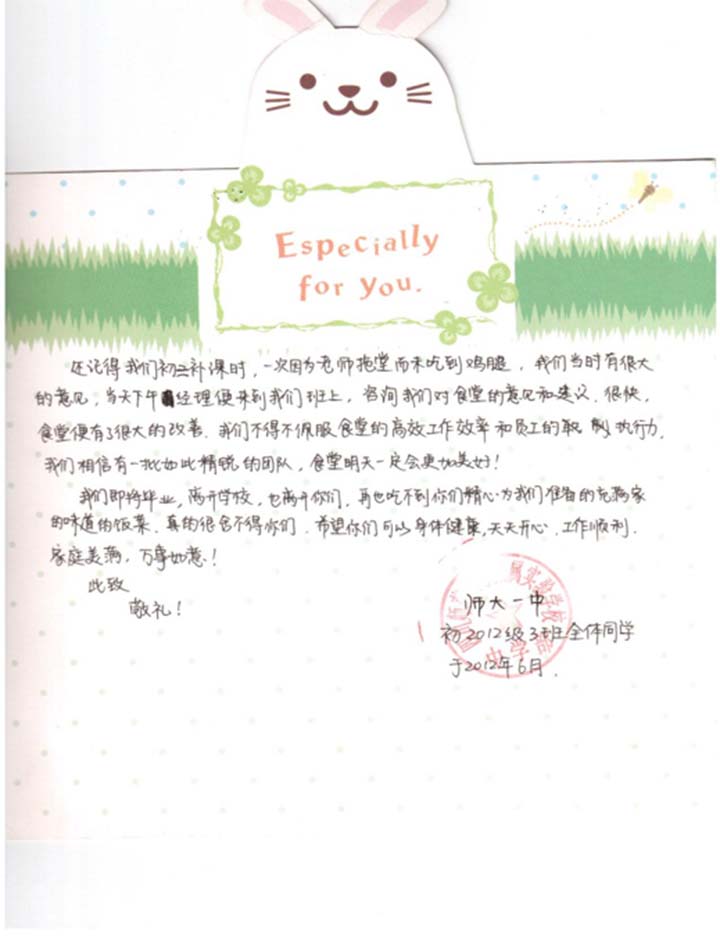 Especially
for you.
还记得我们初三补课时，一次因为老师拖堂而未吃到鸡腿，我们当时有很大
的意见，当天下午 经理便来到我们班上，咨询我们对食堂的意见和建议.很快，
食堂便有了很大的改善.我们不得不佩服食堂的高效工作效率和员工的 执行力，
我们相信有一批如此精锐的团队，食堂明天一定会更加美好！
我们即将毕业，离开学校，也离开你们，再也吃不到你们精心为我们准备的充满家
的味道的饭菜.真的很舍不得你们.希望你们可以身体健康，天天开心，工作顺利.
家庭美满，万事如意！
此致
敬礼！
师大一中
初2012级3班全体同学
于2012年6月.
属实验学校
中学